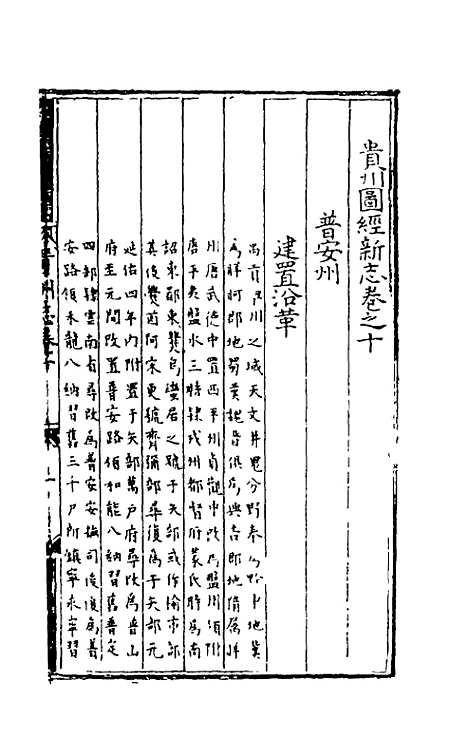 貴州圖經新志卷之十
普安州
建置沿革
禹貢荆州之域天文井鬼分野秦為黔中地漢
為牂柯郡地蜀漢魏晉俱為興古郡地隋屬牂
州唐武德中置西平州貞觀中改為盤州領附
唐平夷盤水三縣隸戎州都督府蒙氏時為南
詔東鄙東爨烏蠻居之號于矢部或作愉市部
其後爨酋阿宋更號齊彌部尋復為于矢部元
延祐四年內附置于矢部萬戶府尋改為普山
府至元間改置普安路領和龍八納習舊普定
四部隸雲南省尋改為普安安撫司後復為普
安路領木龍八納習舊三千戶所鎮寧永寧習